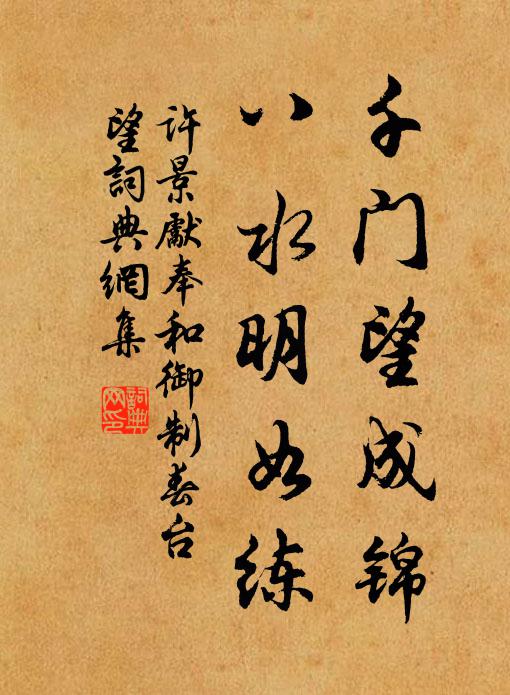 千门望成锦
八水明如练
许景獻奉和御制春台
望詞典網集
詞典网印